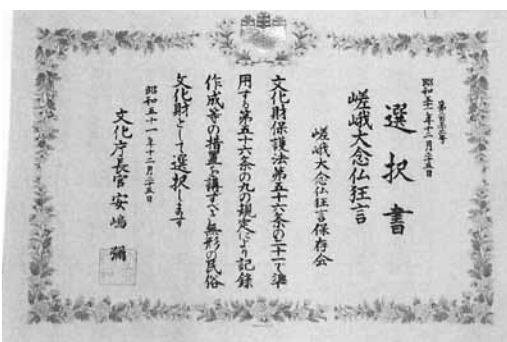 選択書
昭和五十一年十二月二十五日
嵯峨大念仏狂言
嵯峨大念仏狂言保存会
文化財保護法第五十六条の二十一で準
用する第五十六条の九の規定により記録
作成等の措置を講ずべき無形の民俗
文化財として選択します
昭和五十一年十二月二十五日
文化庁長官 安嶋彌